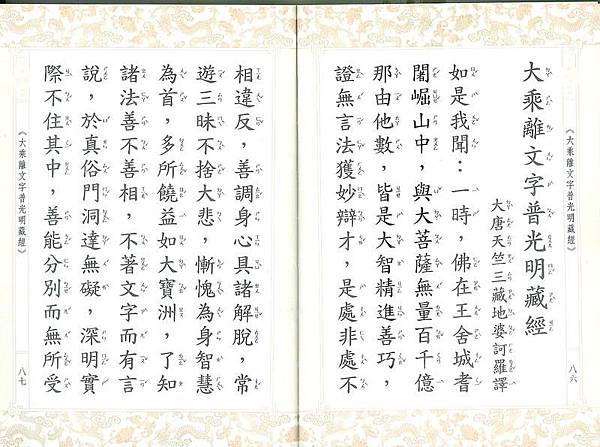 《大乘離文字普光明藏經》
八六
大乘離文字普光明藏經
大唐天竺三藏地婆訶羅譯
如是我聞：一時，佛在王舍城耆
闍崛山中，與大菩薩無量百千億
那由他數，皆是大智精進善巧，
證無言法獲妙辯才，是處非處不
相違反，善調身心具諸解脫，常
遊三昧不捨大悲，慚愧為身智慧
為首，多所饒益如大寶洲，了知
諸法善不善相，不著文字而有言
說，於真俗門洞達無礙，深明實
際不住其中，善能分別而無所受
《大乘離文字普光明藏經》
八七